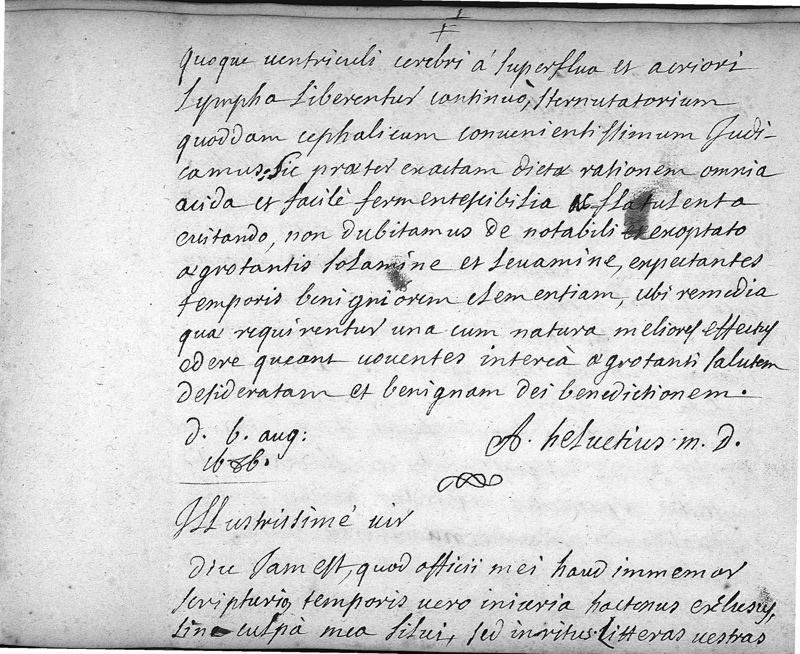 quoque ventriculi cerebri á superfluo et acriori
lympha liberentur continuò, sternutatorium
quoddam cephalicum convenientissimum Judi-
camus, sic præter exactam dietæ rationem omnia
acida et facilè fermentescibilia ac flatulenta
evitando, non dubitamus de notabili et exoptato
ægrotantis solamine et levamine, expectantes
temporis benigniorem clementiam, ubi remedia
quæ requirentur una cum natura meliores effectus
edere queant voventes intereà ægrotanti salutem
desideratam et benignam dei benedictionem.
d. 6. aug:
1686.
A. helvetius m. D.
Illustrissimé vir
diu Jam est, quod officii mei haud immemor
scripturio, temporis vero iniuria hactenus exclusus,
sine culpà mea silui, sed invitus litteras vestras